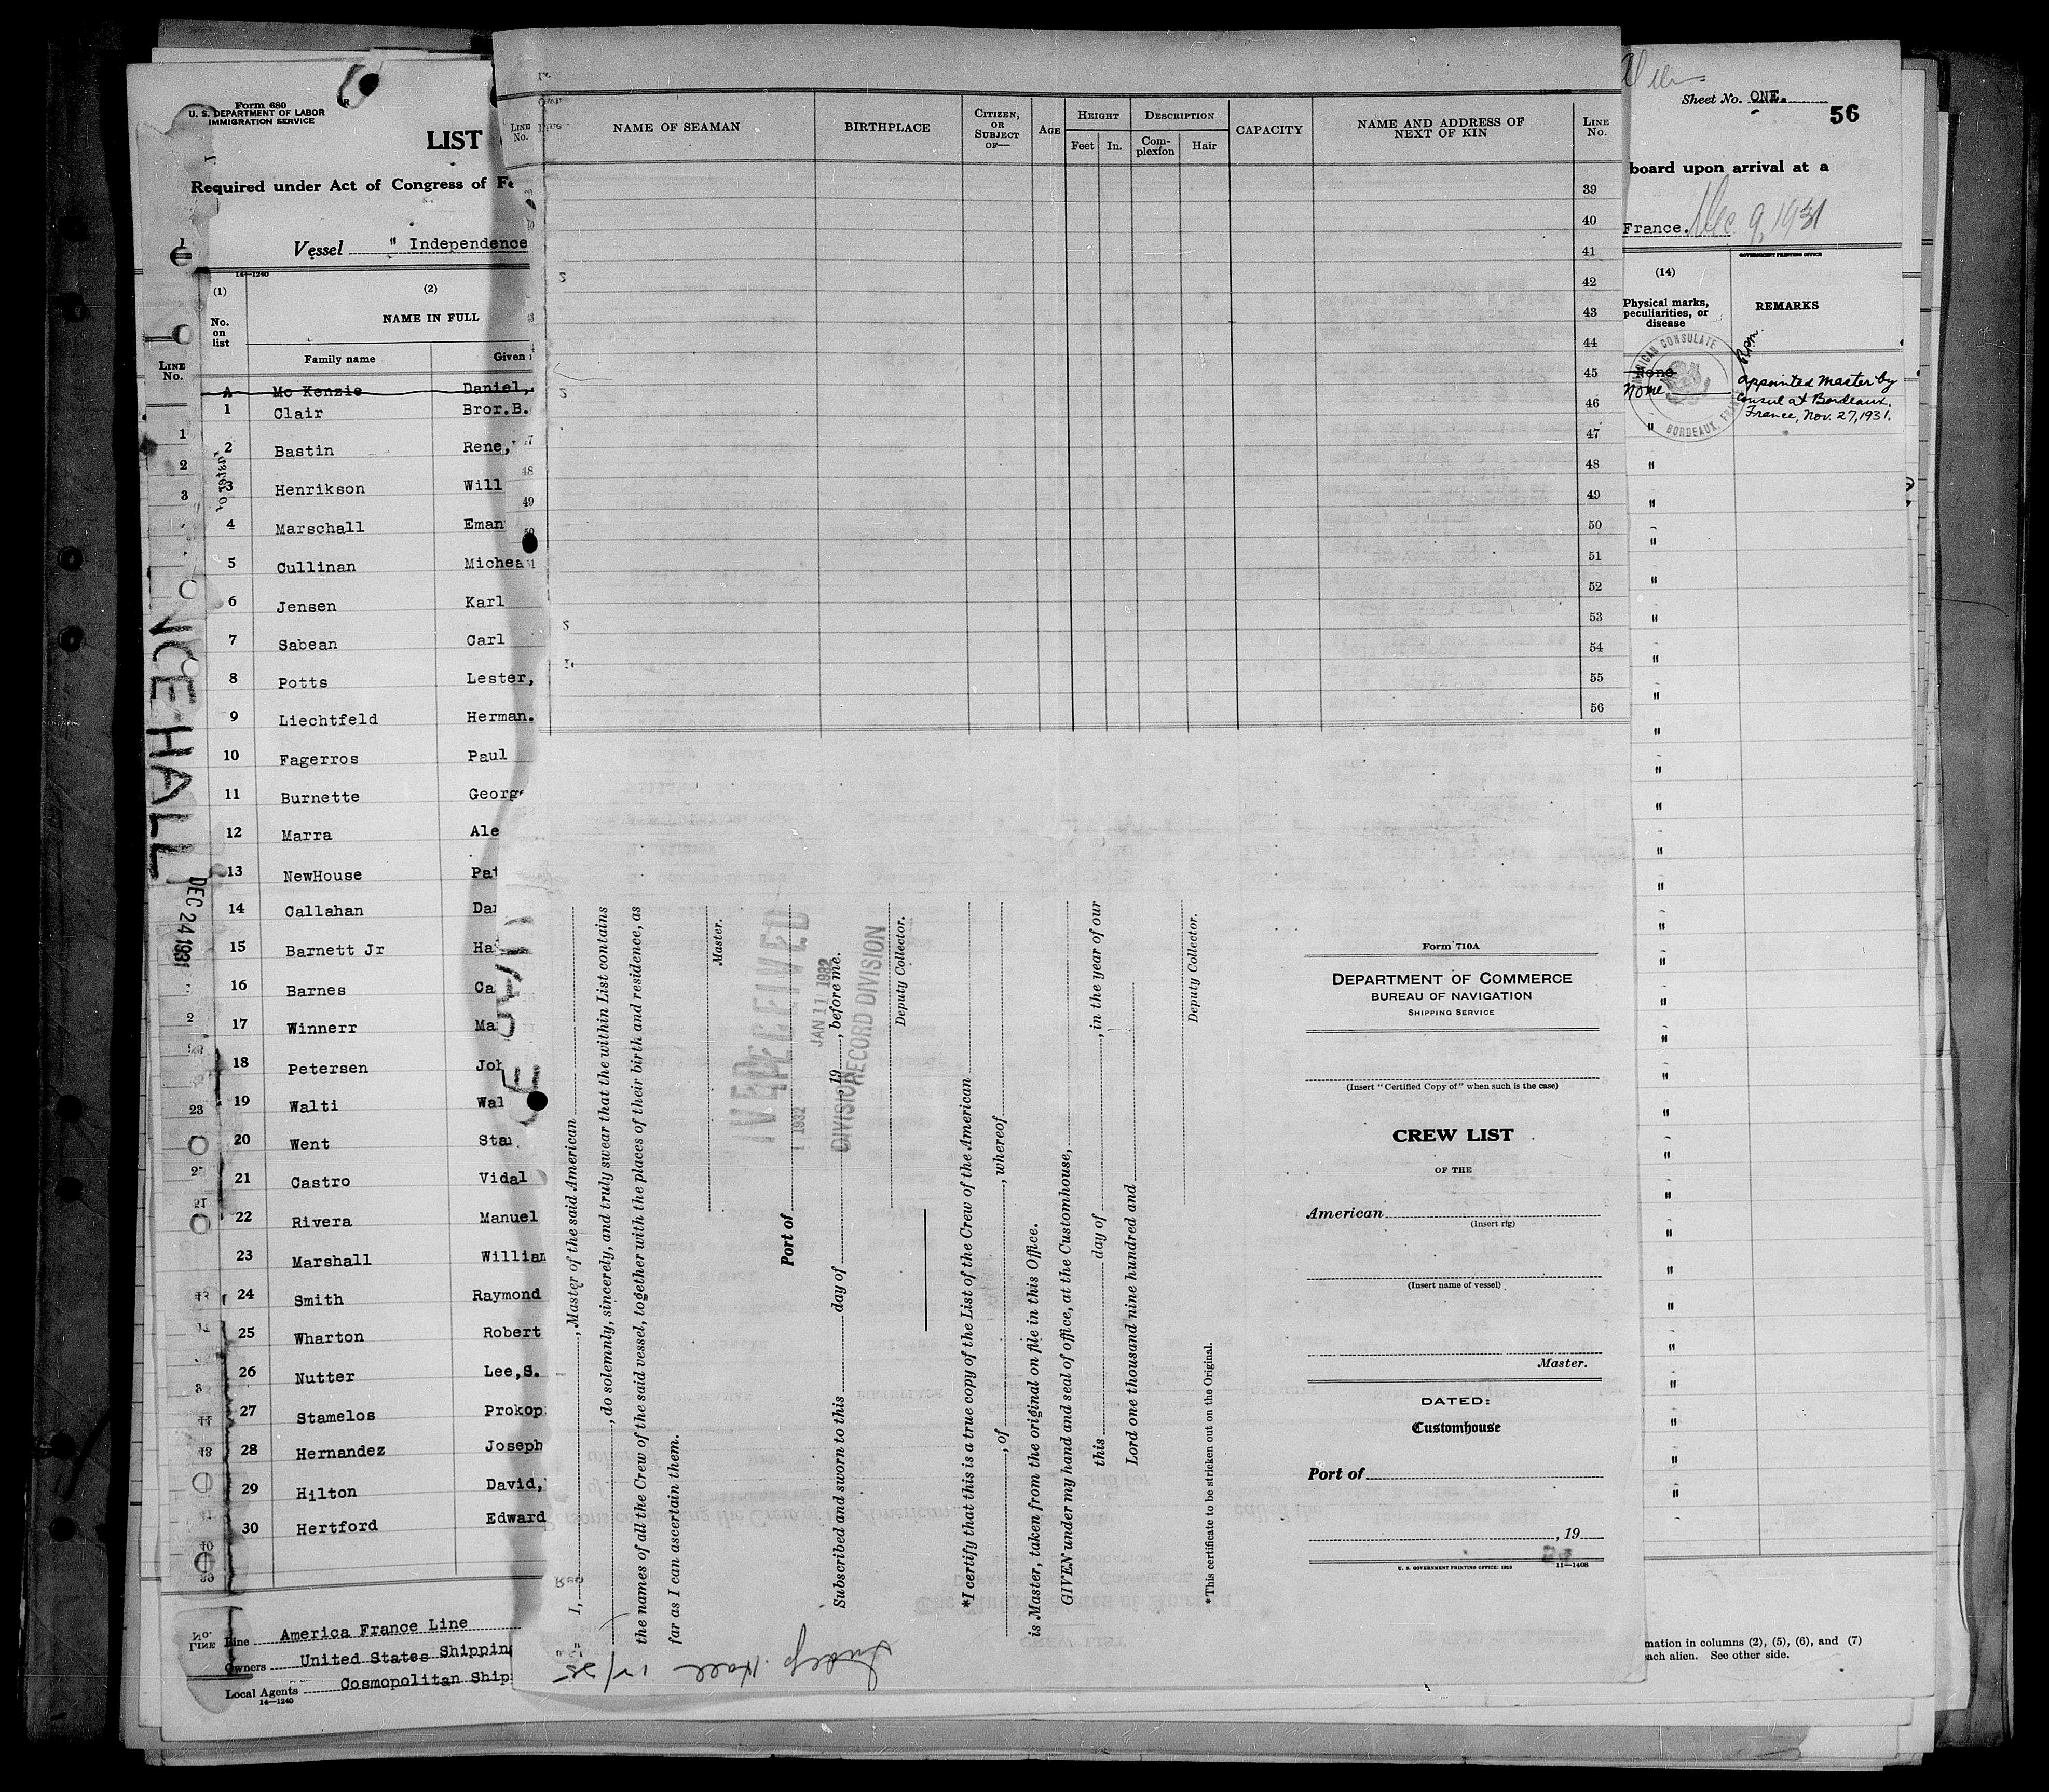 Form 680
U. S. DEPARTMENT OF LABOR
IMMIGRATION SERVICE
LIST
Required under Act of Congress of Fe
Vessel " Independence
14—1240
(1)
(2)
No. on list
NAME IN FULL
LINE No.
Family name
Given
A Mc Kenzie Daniel,
1 Clair Bror.B.
2 Bastin Rene,
3 Henrikson Will
4 Marschall Eman
5 Cullinan Michea
6 Jensen Karl
7 Sabean Carl
8 Potts Lester,
9 Liechtfeld Herman.
10 Fagerros Paul
11 Burnette Georg
12 Marra Ale
13 NewHouse Pat
14 Callahan Da
15 Barnett Jr Ha
16 Barnes Ca
17 Winnerr Ma
18 Petersen Joh
19 Walti Wal
20 Went Sta
21 Castro Vidal
22 Rivera Manuel
23 Marshall William
24 Smith Raymond
25 Wharton Robert
26 Nutter Lee,S.
27 Stamelos Prokop
28 Hernandez Joseph
29 Hilton David,
30 Hertford Edward
Line America France Line
Owners United States Shipping
Local Agents Cosmopolitan Ship
14—1240
NCE HALL
DEC 24 1931
LINE No.
NAME OF SEAMAN
BIRTHPLACE
CITIZEN, OR SUBJECT OF—
AGE
HEIGHT
Feet
In.
DESCRIPTION
Complexion
Hair
CAPACITY
NAME AND ADDRESS OF NEXT OF KIN
LINE No.
39
40
41
42
43
44
45
46
47
48
49
50
51
52
53
54
55
56
I, , Master of the said American
, do solemnly, sincerely, and truly swear that the within List contains
the names of all the Crew of the said vessel, together with the places of their birth and residence, as
far as I can ascertain them.
Master.
Port of
RECEIVED
JAN 11 1932
RECORD DIVISION
Subscribed and sworn to this day of 19 , before me.
Deputy Collector.
*I certify that this is a true copy of the List of the Crew of the American
, of , whereof
is Master, taken from the original on file in this Office.
GIVEN under my hand and seal of office, at the Customhouse,
this day of , in the year of our
Lord one thousand nine hundred and
Deputy Collector.
*This certificate to be stricken out on the Original.
Form 710A
DEPARTMENT OF COMMERCE
BUREAU OF NAVIGATION
SHIPPING SERVICE
(Insert "Certified Copy of" when such is the case)
CREW LIST
OF THE
American
(Insert rig)
(Insert name of vessel)
Master.
DATED:
Customhouse
Port of
, 19
U. S. GOVERNMENT PRINTING OFFICE: 1929
11—1408
Sheet No. ONE.
56
board upon arrival at a
France. Dec 9, 1931
GOVERNMENT PRINTING OFFICE
(14)
Physical marks, peculiarities, or disease
REMARKS
AMERICAN CONSULATE
BORDEAUX, FRANCE
None
None
Appointed Master by
Consul at Bordeaux,
France, Nov. 27, 1931.
mation in columns (2), (5), (6), and (7)
each alien. See other side.